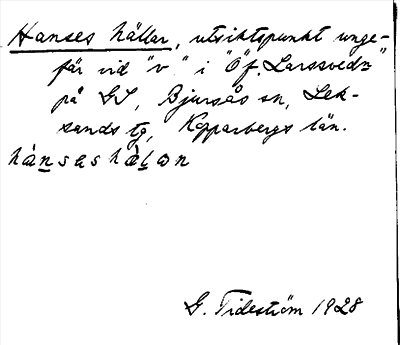 Hanses hällar, utsiktspunkt unge-
fär vid "v." i "Öf. Larssveden"
på GS, Bjursås sn, Lek-
sands tg, Kopparbergs län.
hànseshàlan
G. Tideström 1928